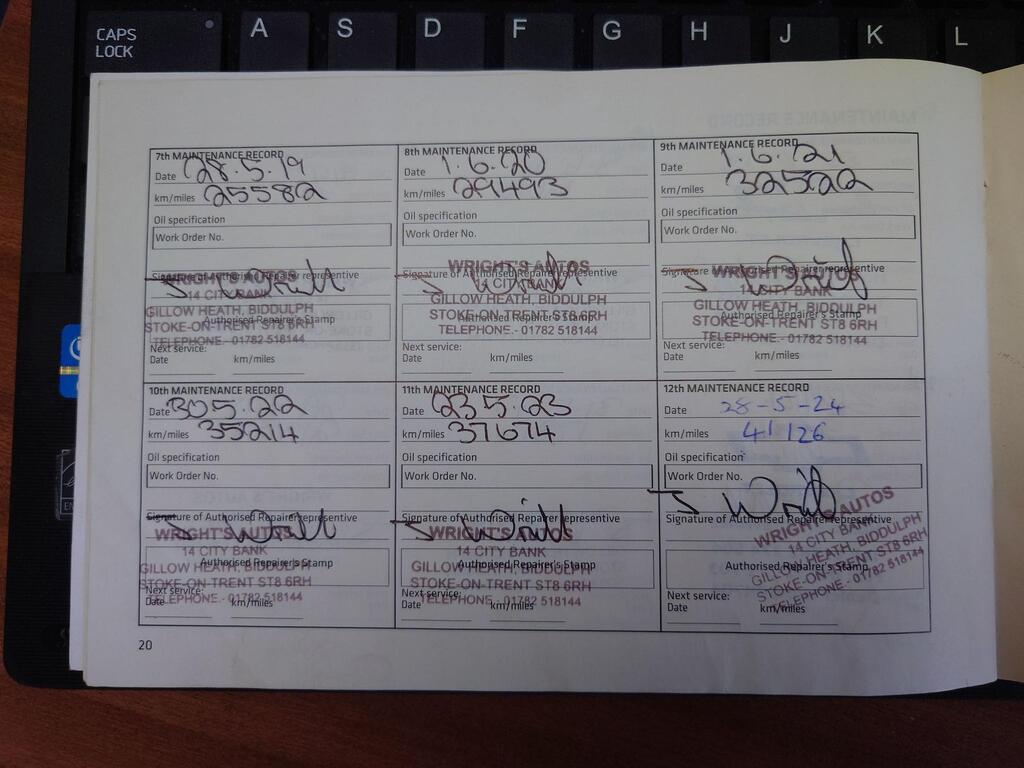 CAPS
LOCK
A
S
D
F
G
H
J
K
L
7th MAINTENANCE RECORD
Date 28.5.19
km/miles 25582
Oil specification
Work Order No.
Signature of Authorised Repairer representative
WRIGHT'S AUTOS
14 CITY BANK
GILLOW HEATH, BIDDULPH
Authorised Repairer's Stamp
STOKE-ON-TRENT ST8 6RH
TELEPHONE.- 01782 518144
Next service:
Date km/miles
8th MAINTENANCE RECORD
Date 1.6.20
km/miles 29493
Oil specification
Work Order No.
WRIGHT'S AUTOS
Signature of Authorised Repairer representative
14 CITY BANK
GILLOW HEATH, BIDDULPH
Authorised Repairer's Stamp
STOKE-ON-TRENT ST8 6RH
TELEPHONE.- 01782 518144
Next service:
Date km/miles
9th MAINTENANCE RECORD
Date 1.6.21
km/miles 32522
Oil specification
Work Order No.
Signature of Authorised Repairer representative
WRIGHT'S AUTOS
14 CITY BANK
GILLOW HEATH, BIDDULPH
Authorised Repairer's Stamp
STOKE-ON-TRENT ST8 6RH
TELEPHONE.- 01782 518144
Next service:
Date km/miles
10th MAINTENANCE RECORD
Date 305.22
km/miles 35214
Oil specification
Work Order No.
Signature of Authorised Repairer representative
WRIGHT'S AUTOS
14 CITY BANK
Authorised Repairer's Stamp
GILLOW HEATH, BIDDULPH
STOKE-ON-TRENT ST8 6RH
Next service:
TELEPHONE.- 01782 518144
Date km/miles
11th MAINTENANCE RECORD
Date 235.23
km/miles 37674
Oil specification
Work Order No.
Signature of Authorised Repairer representative
WRIGHT'S AUTOS
14 CITY BANK
Authorised Repairer's Stamp
GILLOW HEATH, BIDDULPH
STOKE-ON-TRENT ST8 6RH
Next service:
TELEPHONE.- 01782 518144
Date km/miles
12th MAINTENANCE RECORD
Date 28-5-24
km/miles 41126
Oil specification
Work Order No.
Signature of Authorised Repairer representative
WRIGHT'S AUTOS
14 CITY BANK
GILLOW HEATH, BIDDULPH
Authorised Repairer's Stamp
STOKE-ON-TRENT ST8 6RH
TELEPHONE.- 01782 518144
Next service:
Date km/miles
20